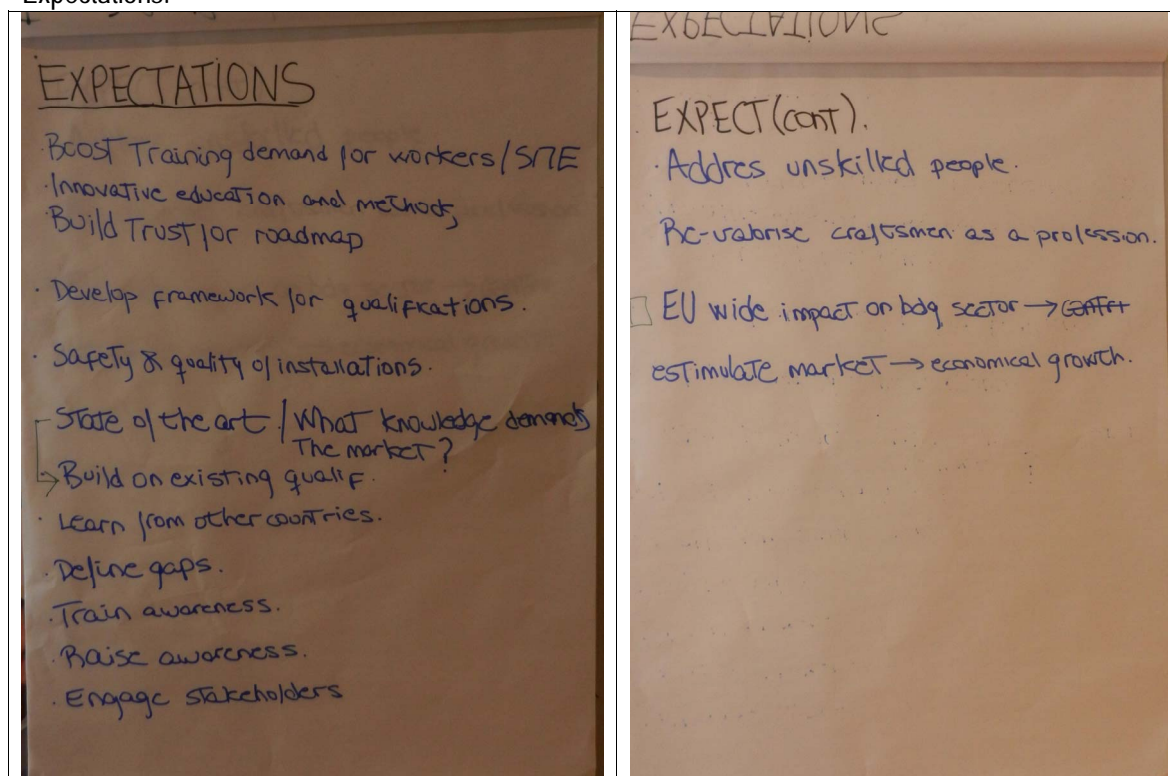 Expectations:
EXPECTATIONS
· Boost Training demand for workers/SME
· Innovative education and methods,
Build Trust for roadmap
· Develop framework for qualifications.
· Safety & quality of installations.
- State of the art / What knowledge demands
The market?
→ Build on existing qualif.
· Learn from other countries.
· Define gaps.
· Train awareness.
· Raise awareness.
· Engage stakeholders
EXPECTATIONS
EXPECT (cont).
· Addres unskilled people.
Re-valorise craftsmen as a profession.
EU wide impact on bdg sector →
estimulate market → economical growth.